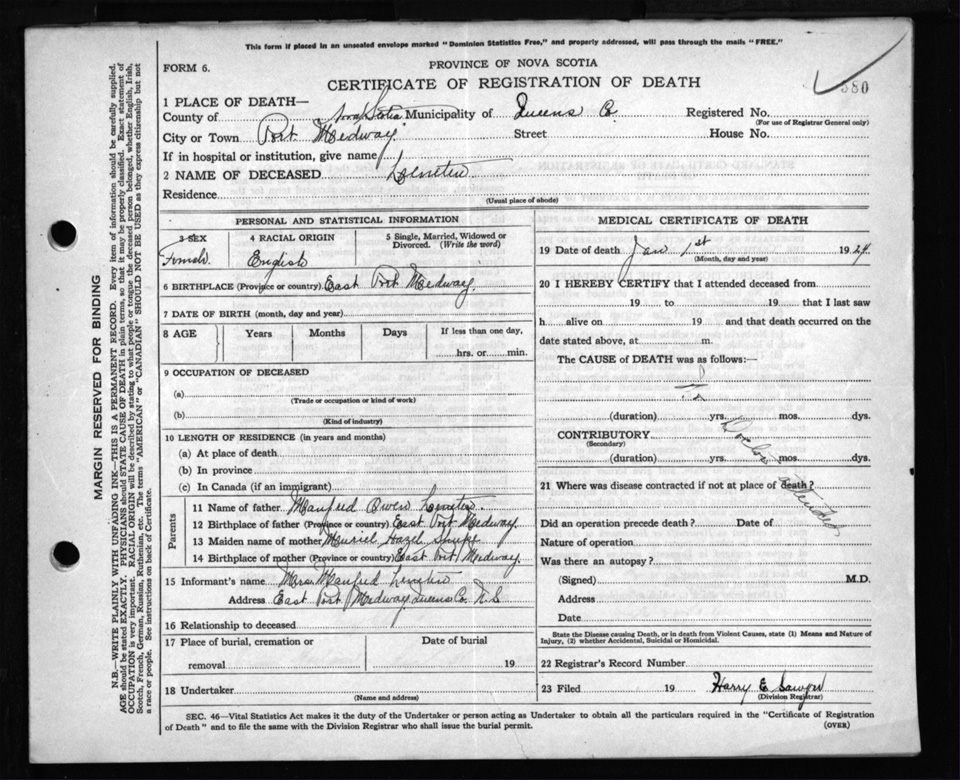 This form if placed in an unsealed envelope marked "Dominion Statistics Free," and properly addressed, will pass through the mails "FREE."
FORM 6.
PROVINCE OF NOVA SCOTIA
CERTIFICATE OF REGISTRATION OF DEATH
580
1 PLACE OF DEATH—
County of Nova Scotia Municipality of Queens Co. Registered No.
(For use of Registrar General only)
City or Town Port Medway Street House No.
If in hospital or institution, give name
2 NAME OF DECEASED
Residence
(Usual place of abode)
PERSONAL AND STATISTICAL INFORMATION
3 SEX
Female
4 RACIAL ORIGIN
English
5 Single, Married, Widowed or Divorced. (Write the word)
6 BIRTHPLACE (Province or country) East Port Medway
7 DATE OF BIRTH (month, day and year)
8 AGE Years Months Days If less than one day,
hrs. or min.
9 OCCUPATION OF DECEASED
(a)
(Trade or occupation or kind of work)
(b)
(Kind of industry)
10 LENGTH OF RESIDENCE (in years and months)
(a) At place of death
(b) In province
(c) In Canada (if an immigrant)
Parents
11 Name of father Manfred Owen
12 Birthplace of father (Province or country) East Port Medway
13 Maiden name of mother Hazel
14 Birthplace of mother (Province or country) East Port Medway.
15 Informant's name Mrs Manfred
Address East Port Medway Queens Co. N.S
16 Relationship to deceased
17 Place of burial, cremation or removal
Date of burial
19
18 Undertaker
(Name and address)
MEDICAL CERTIFICATE OF DEATH
19 Date of death Jan 1st 1924.
(Month, day and year)
20 I HEREBY CERTIFY that I attended deceased from
19 to 19 that I last saw
h alive on 19 and that death occurred on the
date stated above, at m.
The CAUSE of DEATH was as follows:—
No Doctor attended
(duration) yrs. mos. dys.
CONTRIBUTORY
(Secondary)
(duration) yrs. mos. dys.
21 Where was disease contracted if not at place of death?
Did an operation precede death? Date of
Nature of operation
Was there an autopsy?
(Signed) M.D.
Address
Date
State the Disease causing Death, or in death from Violent Causes, state (1) Means and Nature of
Injury, (2) whether Accidental, Suicidal or Homicidal.
22 Registrar's Record Number
23 Filed 19 Harry E
(Division Registrar)
SEC. 46—Vital Statistics Act makes it the duty of the Undertaker or person acting as Undertaker to obtain all the particulars required in the "Certificate of Registration
of Death" and to file the same with the Division Registrar who shall issue the burial permit.
(OVER)
MARGIN RESERVED FOR BINDING
N.B.—WRITE PLAINLY WITH UNFADING INK—THIS IS A PERMANENT RECORD. Every item of information should be carefully supplied.
AGE should be stated EXACTLY. PHYSICIANS should STATE CAUSE OF DEATH in plain terms, so that it may be properly classified. Exact statement of
OCCUPATION is very important. RACIAL ORIGIN will be described by stating to what people or tongue the deceased person belonged, whether English, Irish,
Scotch, French, German, Russian, Ruthenian, etc. The terms "AMERICAN" or "CANADIAN" SHOULD NOT BE USED as they express citizenship but not
a race or people. See instructions on back of Certificate.